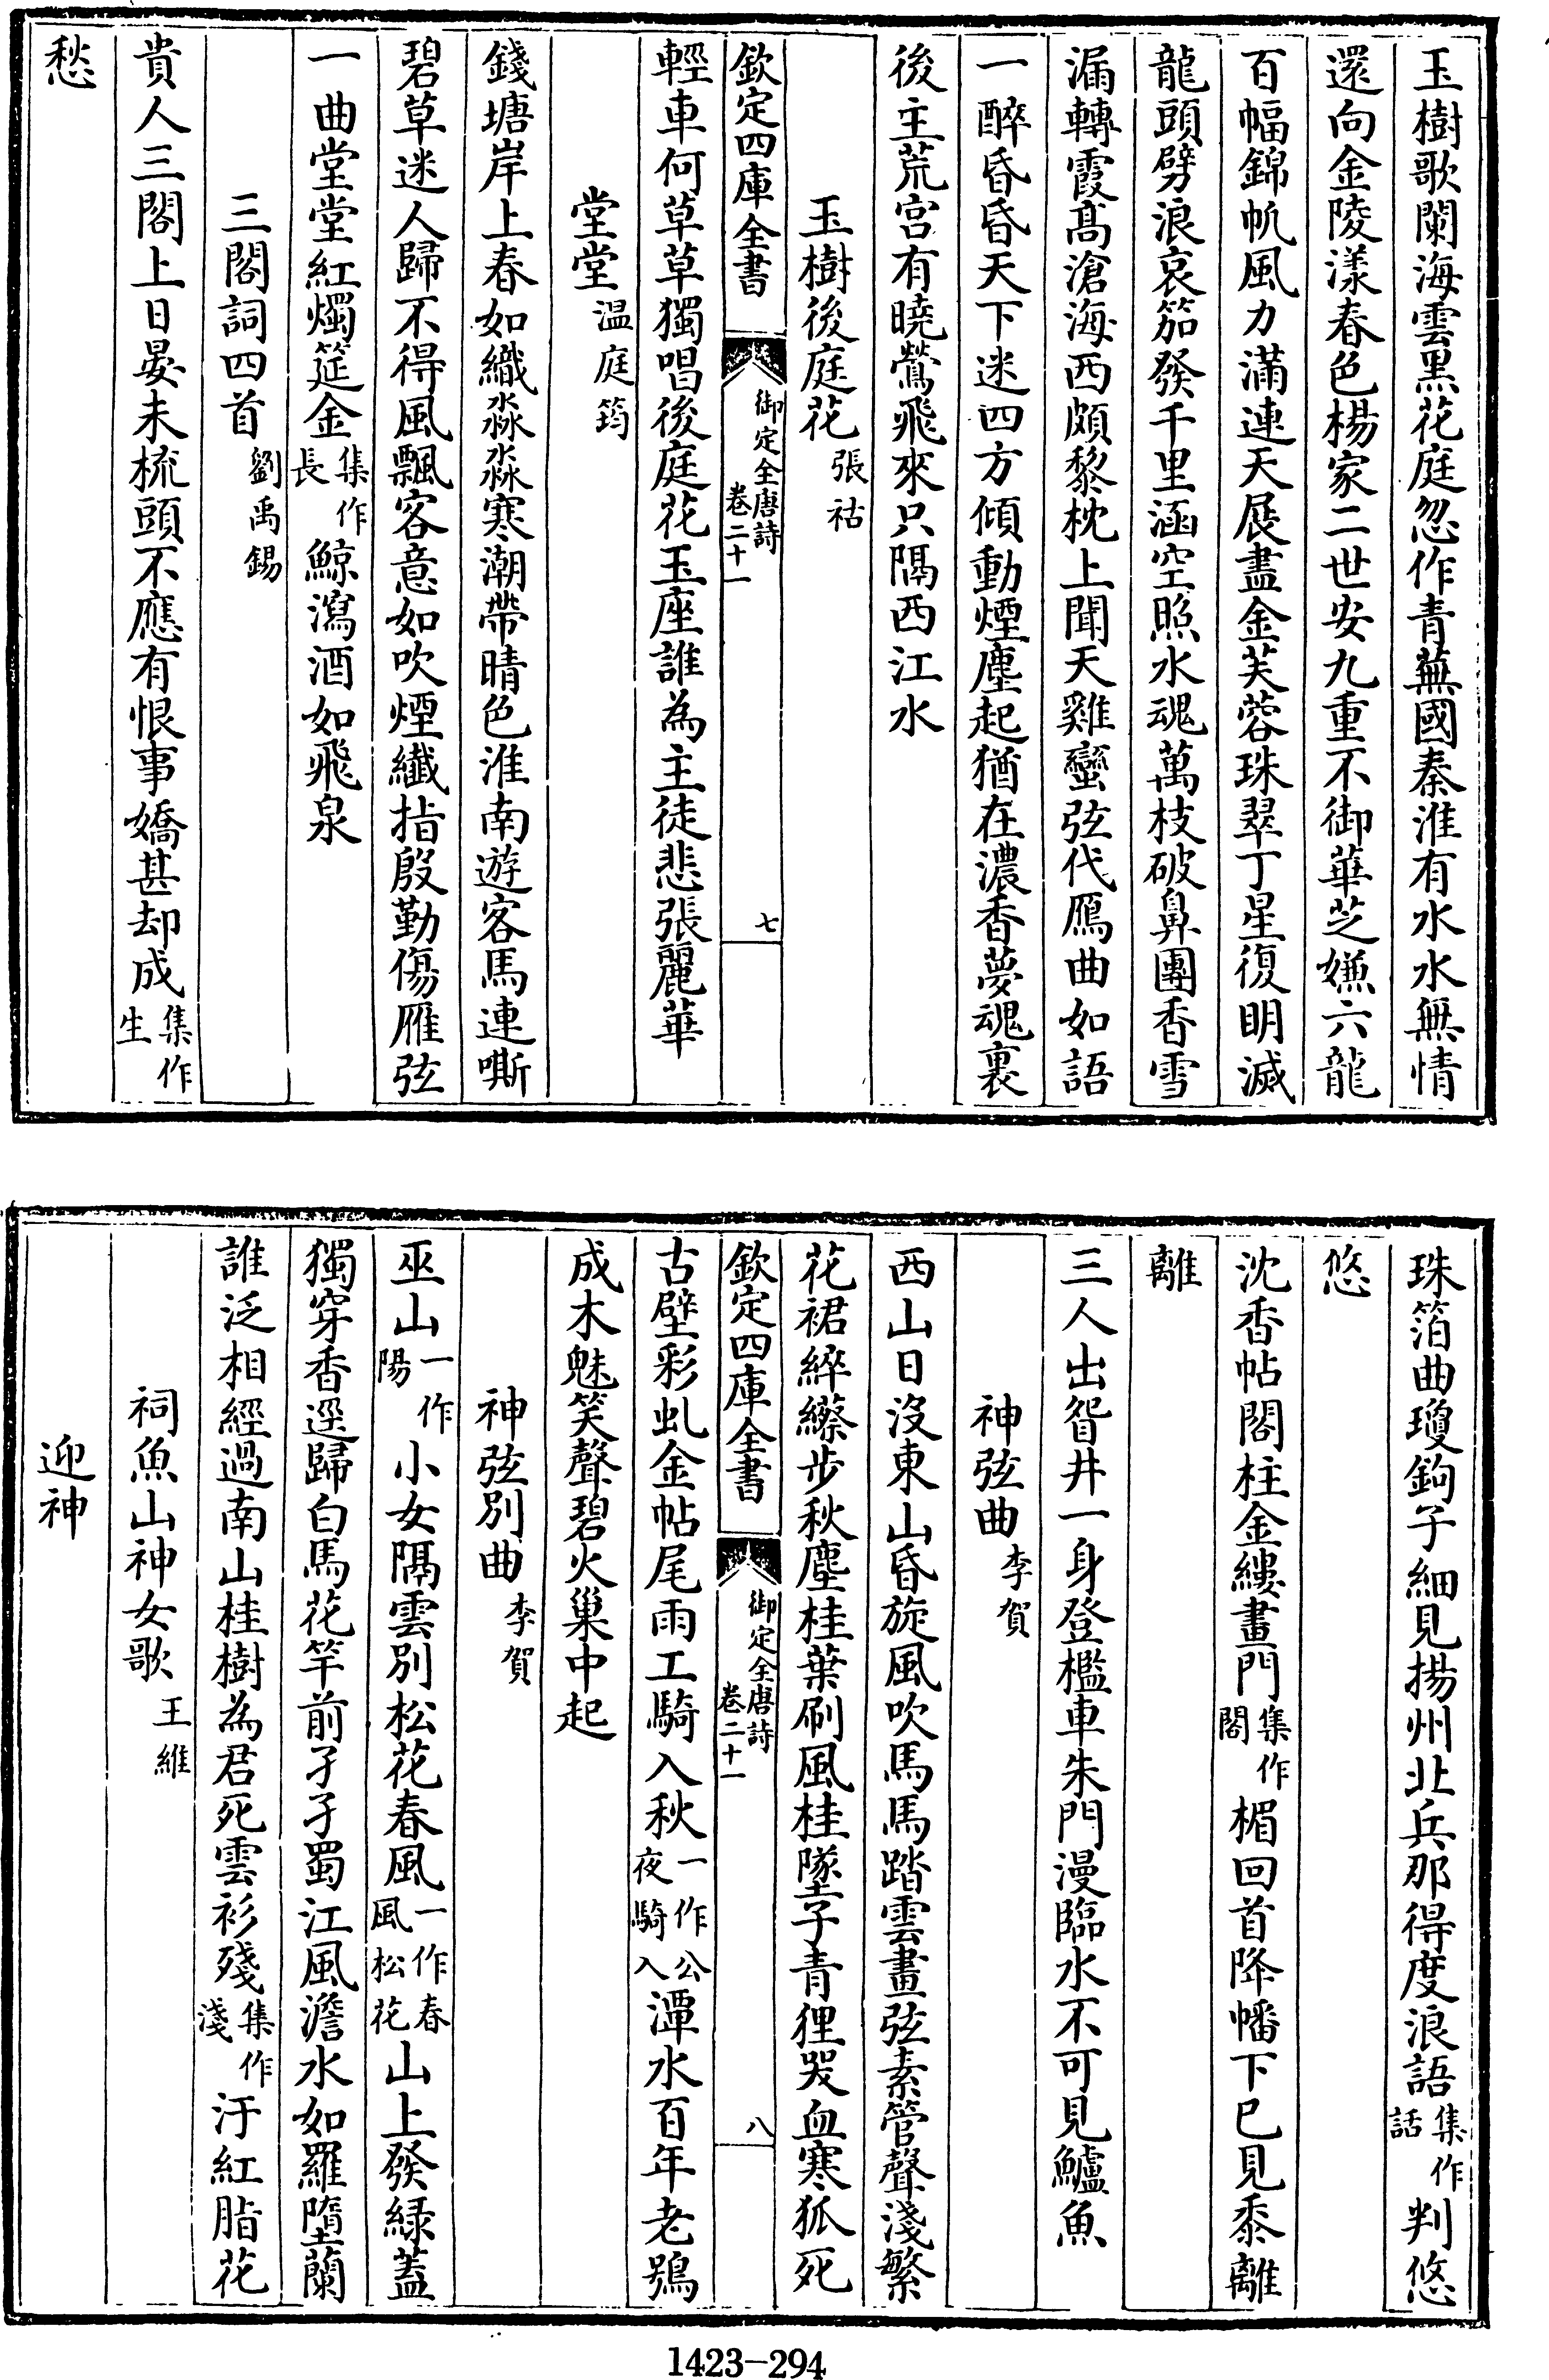 玉樹歌闌海雲黑花庭忽作青蕪國秦淮有水水無情
還向金陵漾春色楊家二世安九重不御華芝嫌六龍
百幅錦帆風力滿連天展盡金芙蓉珠翠丁星復明滅
龍頭劈浪哀笳發千里涵空照水魂萬枝破鼻團香雪
漏轉霞髙滄海西頗黎枕上聞天雞蠻弦代鴈曲如語
一醉昏昏天下迷四方傾動煙塵起猶在濃香夢魂裏
後主荒宫有曉鶯飛來只隔西江水
玉樹後庭花張祜
欽定四庫全書
御定全唐詩
卷二十一
七
輕車何草草獨唱後庭花玉座誰為主徒悲張麗華
堂堂温庭筠
錢塘岸上春如織淼淼寒潮帶晴色淮南遊客馬連嘶
碧草迷人歸不得風飄客意如吹煙纖指殷勤傷雁弦
一曲堂堂紅燭筵金集作長鯨瀉酒如飛泉
三閣詞四首劉禹錫
貴人三閣上日晏未梳頭不應有恨事嬌甚却成集作生
愁
珠箔曲瓊鉤子細見揚州北兵那得度浪語集作話判悠
悠
沈香帖閣柱金縷畫門集作閣楣回首降幡下已見黍離
離
三人出眢井一身登檻車朱門漫臨水不可見鱸魚
神弦曲李賀
西山日沒東山昏旋風吹馬馬踏雲畫弦素管聲淺繁
花裙綷縩步秋塵桂葉刷風桂墜子青狸哭血寒狐死
欽定四庫全書
御定全唐詩
卷二十一
八
古壁彩虬金帖尾雨工騎入秋一作公夜騎入潭水百年老鴞
成木魅笑聲碧火巢中起
神弦别曲李賀
巫山一作陽小女隔雲别松花春風一作春風松花山上發緑蓋
獨穿香逕歸白馬花竿前孑孑蜀江風澹水如羅墮蘭
誰泛相經過南山桂樹為君死雲衫殘集作淺汙紅脂花
祠魚山神女歌王維
迎神
1423-294